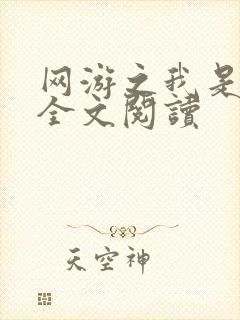 网游之我是
全文閱讀
天空神